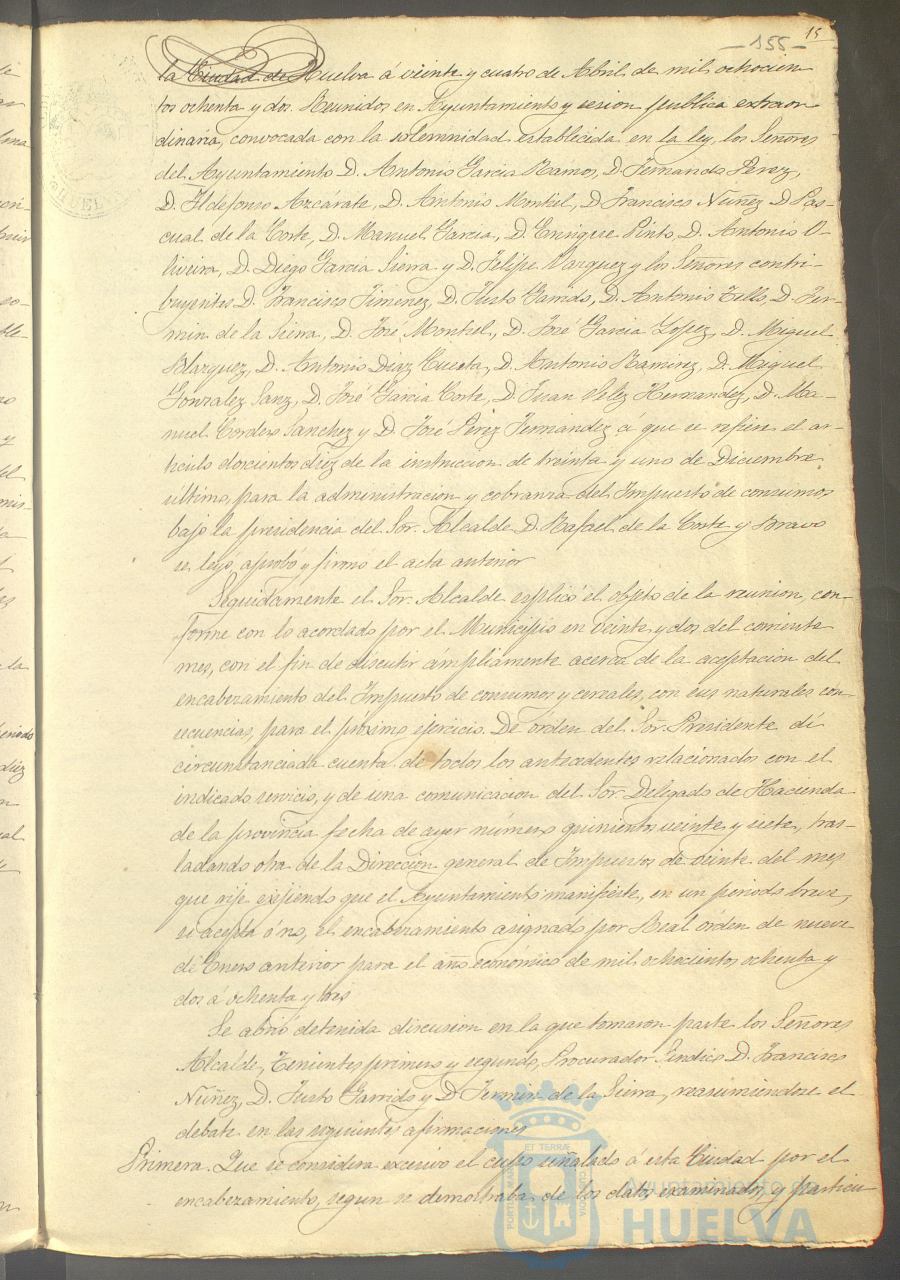 15
-155-
la Ciudad de Huelva á veinte y cuatro de Abril de mil ochocien
tos ochenta y dos. Reunidos en Ayuntamiento y sesion publica extraor
dinaria, convocada con la solemnidad establecida en la ley, los Señores
del Ayuntamiento D. Antonio Garcia Ramos, D. Fernando Perez,
D. Ildefonso Azcárate, D. Antonio Montiel, D Francisco Nuñez D Pas-
cual de la Corte, D. Manuel Garcia, D. Enrique Pinto, D. Antonio O-
liveira, D. Diego Garcia Sierra y D. Felipe Vazquez y los Señores contri-
buyentes D. Francisco Jimenez, D. Justo Garrido, D. Antonio Tello, D. Fer-
min de la Sierra, D. José Montiel, D. José Garcia Lopez, D. Miguel
Blazquez, D. Antonio Diaz Cuesta, D. Antonio Ramirez, D. Miguel
Gonzalez Sanz, D. José Garcia Corte, D. Juan Velez Hernandez, D. Ma-
nuel Cordero Sanchez y D. José Pérez Fernández á que se refiere el ar-
ticulo doscientos diez de la instruccion de treinta y uno de Diciembre
último, para la administracion y cobranza del Impuesto de consumos
bajo la presidencia del Sor. Alcalde D. Rafael de la Corte y Bravo
se leyó, aprobó y firmó el acta anterior
Seguidamente el Sor. Alcalde esplicó el objeto de la reunion, con-
forme con lo acordado por el Municipio en veinte y dos del corriente
mes, con el fin de discutir ampliamente acerca de la aceptacion del
encabezamiento del Impuesto de consumos y cereales, con sus naturales con-
secuencias, para el próximo ejercicio. De órden del Sor. Presidente dí
circunstanciada cuenta de todos los antecedentes relacionados con el
indicado servicio, y de una comunicacion del Sor. Delegado de Hacienda
de la provincia fecha de ayer número quinientos veinte y siete, tras-
ladando otra de la Direccion general de Impuestos de veinte del mes
que rije exijiendo que el Ayuntamiento manifieste, en un periodo breve,
si acepta ó no, el encabezamiento asignado por Real órden de nueve
de Enero anterior para el año económico de mil ochocientos ochenta y
dos á ochenta y tres
Se abrió detenida discusion en la que tomaron parte los Señores
Alcalde, Tenientes primero y segundo, Procurador Sindico D. Francisco
Nuñez, D. Justo Garrido y D. Fermin de la Sierra, reasumiendose el
debate en las seguientes afirmaciones
Primera. Que se considera excesivo el cupo señalado á esta Ciudad por el
encabezamiento, segun se demostraba de los datos examinados, y particu
Ayuntamiento de
HUELVA